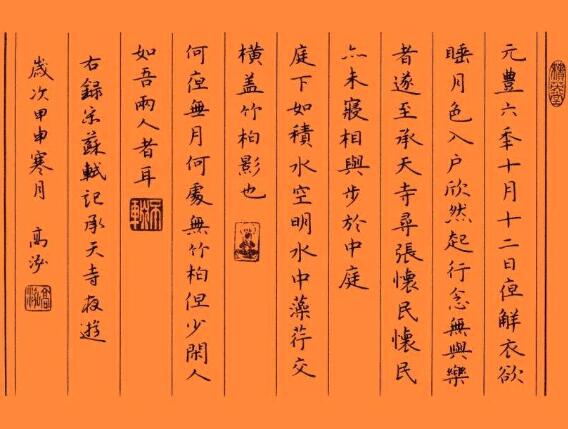 元豐六秊十月十二日夜解衣欲
睡月色入户欣然起行念無與樂
者遂至承天寺尋張懷民懷民
亦未寢相與步於中庭
庭下如積水空明水中藻荇交
橫盖竹柏影也
何夜無月何處無竹柏但少閑人
如吾兩人者耳
右録宋蘇軾記承天寺夜遊
歲次甲申寒月 高泓